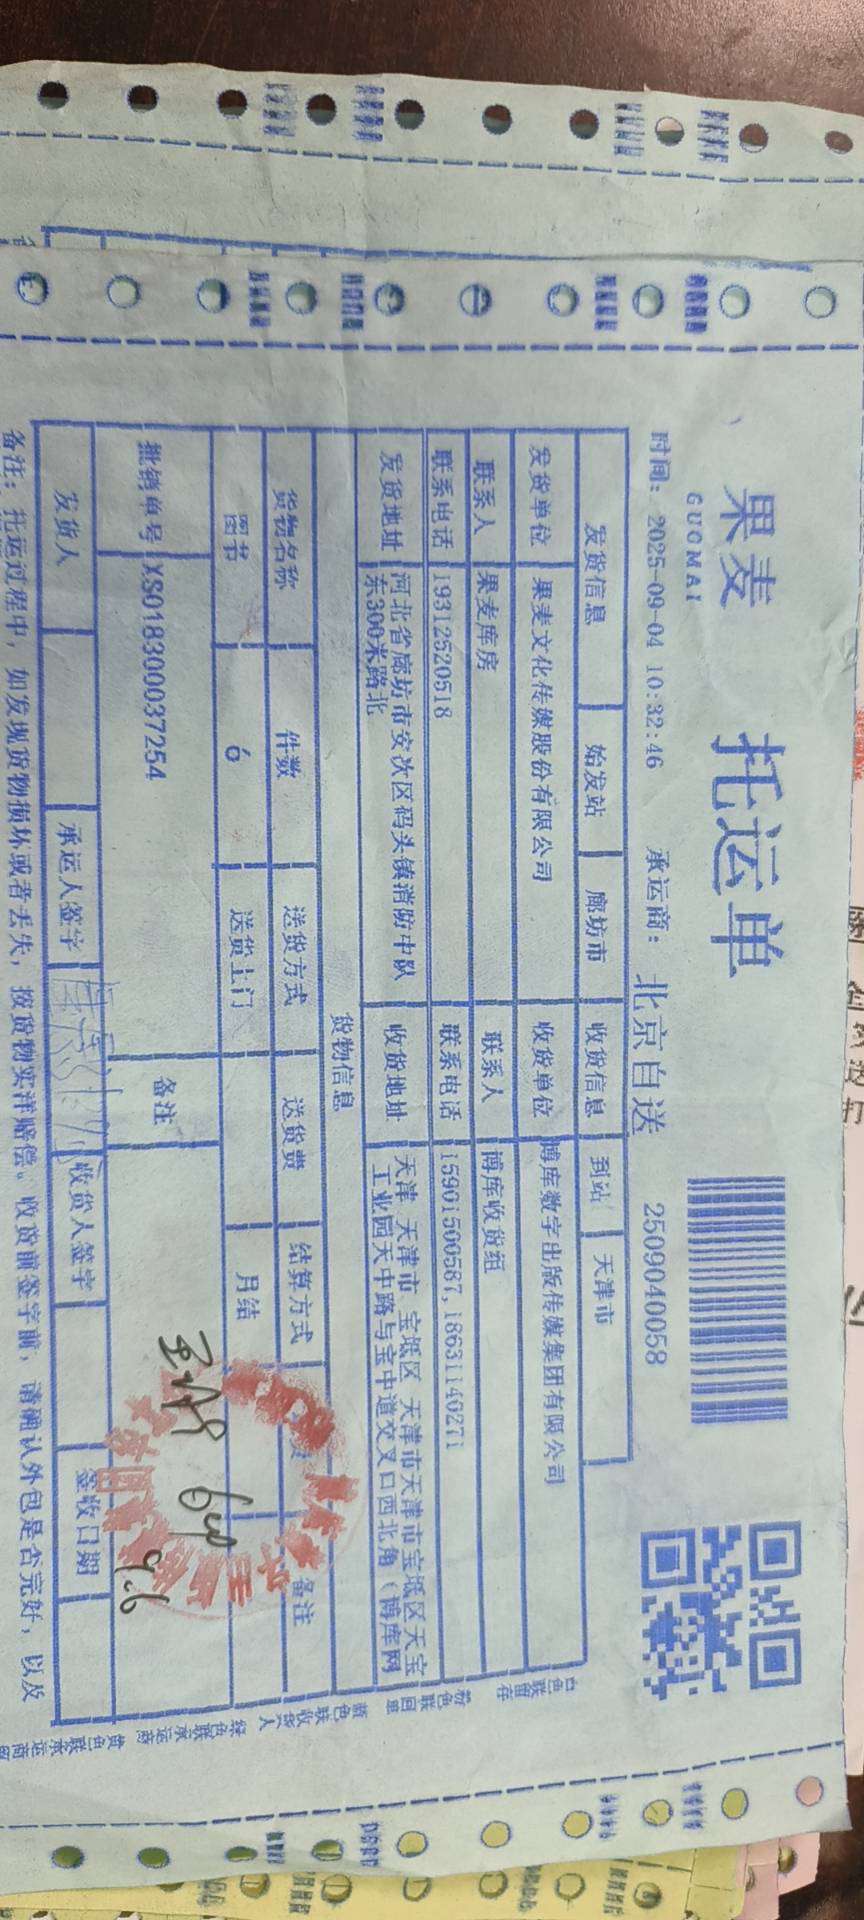 果麦
GUOMAI
托运单
时间: 2025-09-04 10:32:46 承运商: 北京自送 2509040058
发货信息 始发站 廊坊市 收货信息 到站 天津市
发货单位 果麦文化传媒股份有限公司 收货单位 博库数字出版传媒集团有限公司
联系人 果麦库房 联系人 博库收货组
联系电话 19312520518 联系电话 15901500587,18631140271
发货地址 河北省廊坊市安次区码头镇消防中队东300米路北 收货地址 天津 天津市 宝坻区 天津市天津市宝坻区天宝工业园天中路与宝中道交叉口西北角(博库网
货物信息
货物名称 件数 送货方式 送货费 结算方式 备注
图书 6 送货上门 月结
批销单号 XS018300037254 备注
6件
9.6
发货人 承运人签字 收货人签字 签收日期
备注: 托运过程中, 如发现货物损坏或者丢失, 按货物实洋赔偿。收货前签字前, 请确认外包是否完好, 以及
白色联留存
粉色联回单
蓝色联收货人
绿色联承运商
黄色联承运商